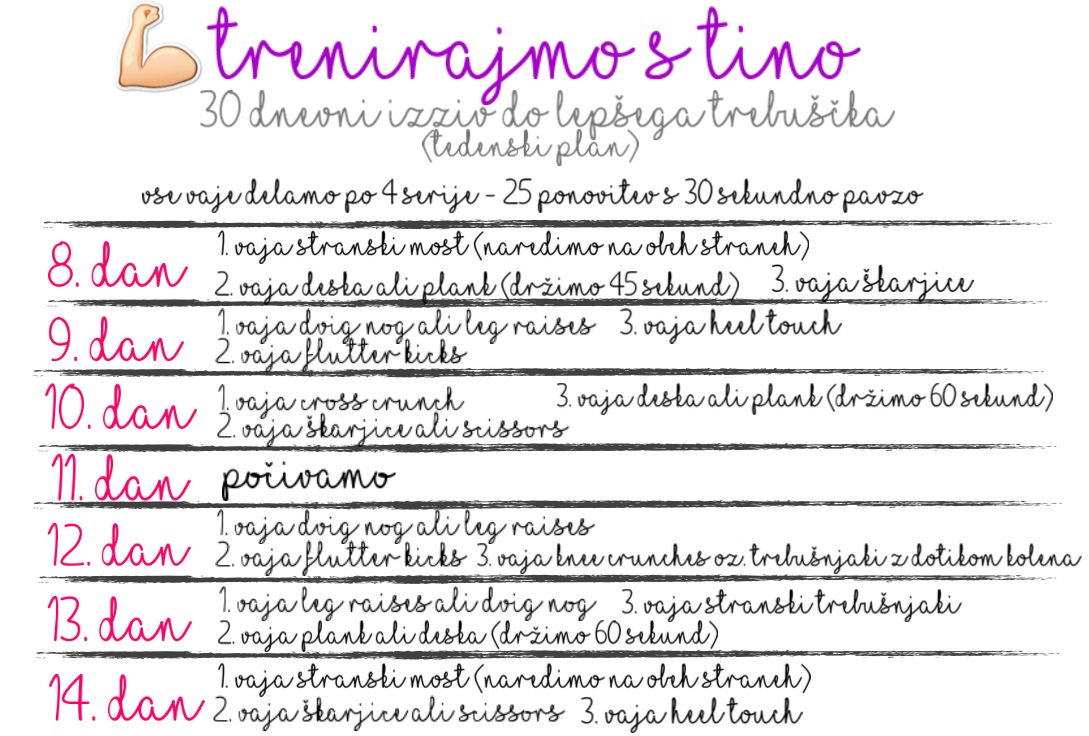 trenirajmo s tino
30 dnevni izziv do lepšega trebuščka
(tedenski plan)
vse vaje delamo po 4 serije - 25 ponovitev s 30 sekundno pavzo
8. dan
1. vaja stranski most (naredimo na obeh straneh)
2. vaja deska ali plank (držimo 45 sekund) 3. vaja škarjice
9. dan
1. vaja dvig nog ali leg raises 3. vaja heel touch
2. vaja flutter kicks
10. dan
1. vaja cross crunch 3. vaja deska ali plank (držimo 60 sekund)
2. vaja škarjice ali scissors
11. dan
počivamo
12. dan
1. vaja dvig nog ali leg raises
2. vaja flutter kicks 3. vaja knee crunches oz. trebušnjaki z dotikom kolena
13. dan
1. vaja leg raises ali dvig nog 3. vaja stranski trebušnjaki
2. vaja plank ali deska (držimo 60 sekund)
14. dan
1. vaja stranski most (naredimo na obeh straneh)
2. vaja škarjice ali scissors 3. vaja heel touch